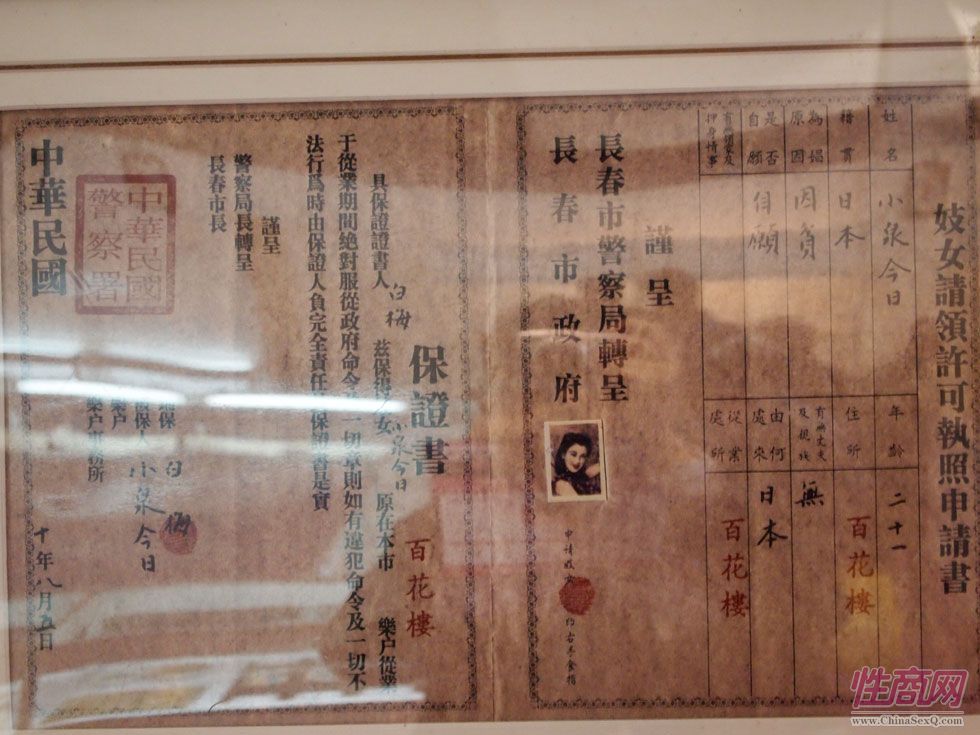 妓女請領許可執照申請書
姓名 小泉今日 年齡 二十一
籍貫 日本 住所 百花樓
為娼原因 因貧 有無丈夫及親族 無
是否自願 自願 由何處來 日本
押身情事 從業處所 百花樓
謹呈
長春市警察局轉呈
長春市政府
申請妓女
保證書
百花樓
具保證證書人 白梅 茲保得妓女 小泉今日 原在本市 樂户從業
于從業期間絕對服從政府命令及一切章則如有違犯命令及一切不
法行爲時由保證人負完全責任 保證書是實
謹呈
警察局長轉呈
長春市長
保 白梅
保人 小泉今日
樂户
樂户事務所
中華民國 十年八月五日
中華民國
警察署
性商网
www.ChinaSexQ.com